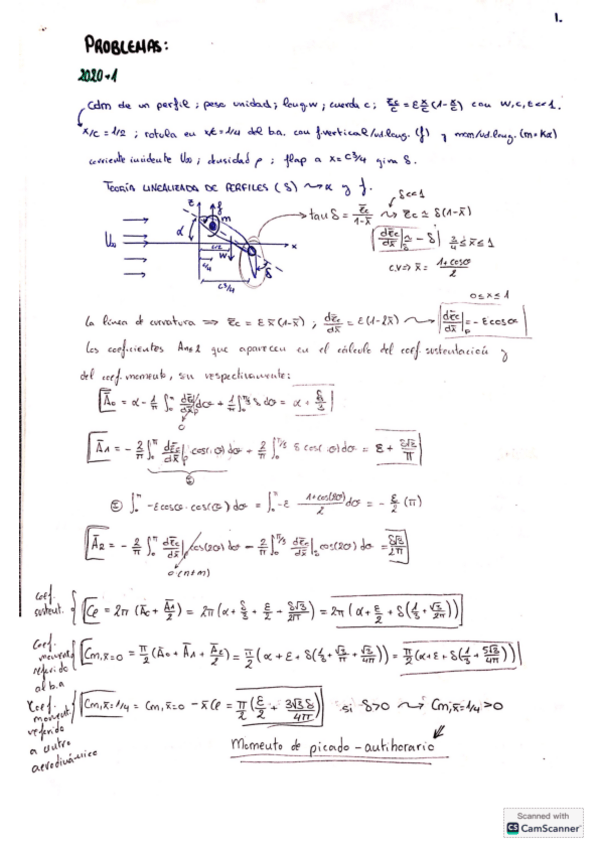 1.
PROBLEMAS:
2020-1
Cdm de un perfil ; peso unidad/long w ; cuerda c ; z̄c = ε x/c (1 - x/c) con w, c, ε <<1.
x/c = 1/2 ; rotula en x/c = 1/4 del b.a. con f.vertical/ud.long. (f) y mom/ud.long. (m=Kα)
corriente incidente U∞ ; densidad ρ ; flap a x = c3/4 gira δ.
TEORÍA LINEALIZADA DE PERFILES (δ) ⇝ α y f.
δ<<1
tau δ = z̄c/(1-x̄) ⇝ z̄c ≃ δ(1-x̄)
dz̄c/dx̄ |δ ≃ -δ 3/4 ≤ x̄ ≤ 1
c.v ⇒ x̄ = (1+cosθ)/2
z
f
m
α
U∞
x
c/2
W
c/4
c3/4
δ
0 ≤ x ≤ 1
La línea de curvatura ⇒ z̄c = ε x̄(1-x̄) ; dz̄c/dx̄ = ε(1-2x̄) ⇝ dz̄c/dx̄ |p = -ε cosθ
Los coeficientes An≤2 que aparecen en el cálculo del coef. sustentación y
del coef. momento, son respectivamente:
Ā0 = α - 1/π ∫0^π dz̄c/dx̄ |p dθ + 1/π ∫0^π/3 δ dθ = α + δ/3
0
Ā1 = - 2/π ∫0^π dz̄c/dx̄ |p cos(1·θ) dθ + 2/π ∫0^π/3 δ cos(1·θ) dθ = ε + δ√3/π
Ⓘ
Ⓘ ∫0^π -ε cosθ · cos(θ) dθ = ∫0^π -ε (1+cos(2θ))/2 dθ = - ε/2 (π)
Ā2 = - 2/π ∫0^π dz̄c/dx̄ |p cos(2θ) dθ - 2/π ∫0^π/3 dz̄c/dx̄ |δ cos(2θ) dθ = δ√3/2π
0 (n≠m)
Coef. sustent.
Cl = 2π (Ā0 + Ā1/2) = 2π (α + δ/3 + ε/2 + δ√3/2π) = 2π (α + ε/2 + δ(1/3 + √3/2π))
Coef. momento referido al b.a
Cm,x̄=0 = π/2 (Ā0 + Ā1 + Ā2/2) = π/2 (α + ε + δ(1/3 + √3/π + √3/4π)) = π/2 (α + ε + δ(1/3 + 5√3/4π))
Coef. momento referido a centro aerodinámico
Cm,x̄=1/4 = Cm,x̄=0 - x̄ Cl = π/2 (ε/2 + 3√3 δ/4π) si δ>0 ⇝ Cm,x̄=1/4 >0
Momento de picado - antihorario
Scanned with
CS CamScanner